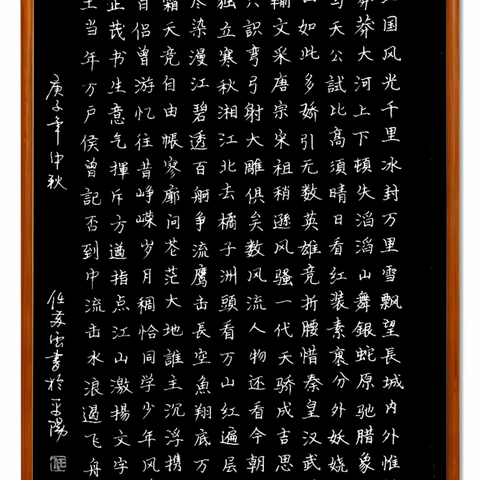 国风光千里冰封万里雪飘望長城内外惟
莽大河上下頓失滔滔山舞銀蛇原驰腊象
与天公試比高須晴日看红装素裹分外妖娆
如此多娇引无数英雄竞折腰惜秦皇汉武
輸文采唐宗宋祖稍遜风骚一代天骄成吉思
只識弯弓射大雕俱矣数风流人物还看今朝
独立寒秋湘江北去橘子洲頭看万山红遍层
尽染漫江碧透百舸争流鹰击長空魚翔底万
霜天竞自由悵寥廓问苍茫大地誰主沉浮携
百侣曾游忆往昔峥嵘岁月稠恰同学少年风
正茂书生意气揮斥方遒指点江山激揚文字
土当年万戶侯曾記否到中流击水浪遏飞舟
庚子年中秋
任書於平陽